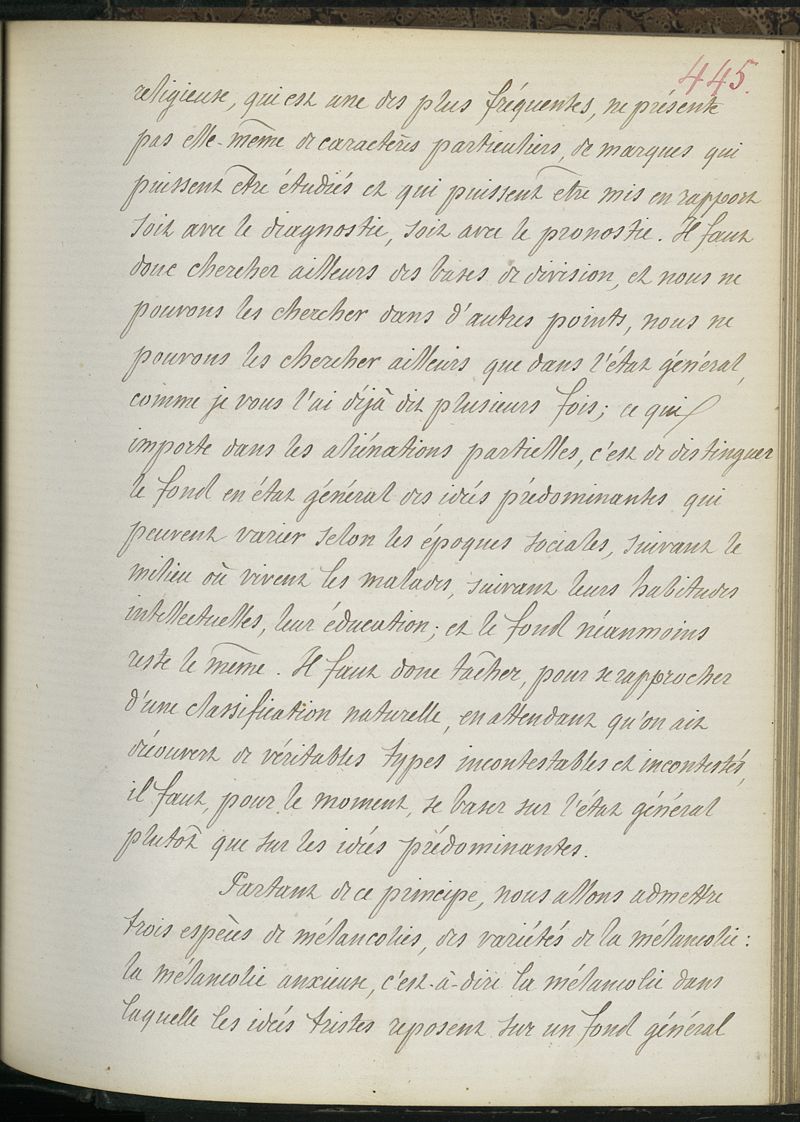 445.
religieuse, qui est une des plus fréquentes, ne présente
pas elle-même de caractères particuliers, de marques qui
puissent être étudiés et qui puissent être mis en rapport
soit avec le diagnostic, soit avec le pronostic. Il faut
donc chercher ailleurs des bases de division, et nous ne
pouvons les chercher dans d'autres points, nous ne
pouvons les chercher ailleurs que dans l'état général,
comme je vous l'ai déjà dit plusieurs fois; ce qui
importe dans les aliénations partielles, c'est de distinguer
le fond en état général des idées prédominantes qui
peuvent varier selon les époques sociales, suivant le
milieu où vivent les malades, suivant leurs habitudes
intellectuelles, leur éducation; et le fond néanmoins
reste le même. Il faut donc tâcher, pour se rapprocher
d'une classification naturelle, en attendant qu'on ait
découvert de véritables types incontestables et incontestés,
il faut, pour le moment, se baser sur l'état général
plutôt que sur les idées prédominantes.
Partant de ce principe, nous allons admettre
trois espèces de mélancolies, des variétés de la mélancolie:
la mélancolie anxieuse, c'est-à-dire la mélancolie dans
laquelle les idées tristes reposent sur un fond général